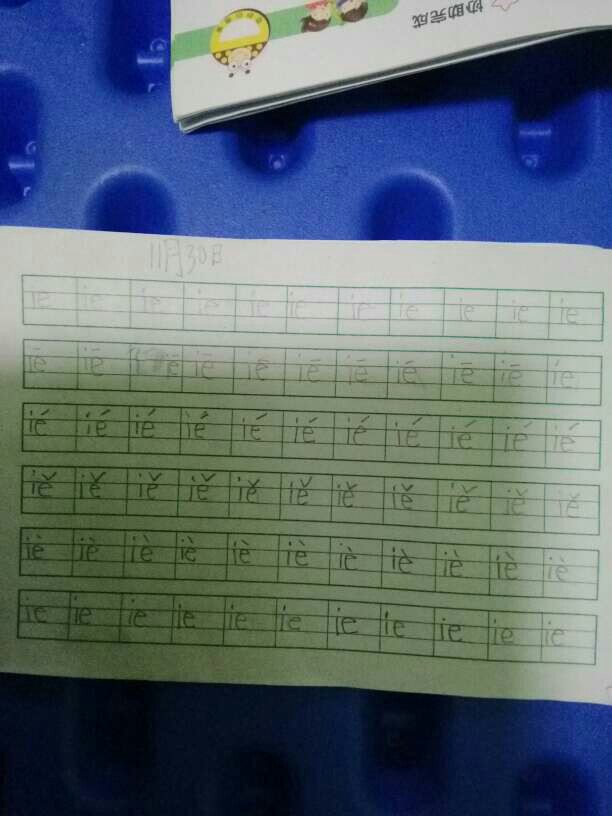 协助完成
11月30日
ie ie ie ie ie ie ie ie ie ie ie
iē iē iē iē iē iē iē iē iē iē ie
ié ié ié ié ié ié ié ié ié ié ié
iě iě iě iě iě iě iě iě iě iě iě
iè iè iè iè iè iè iè iè iè iè iè
ie ie ie ie ie ie ie ie ie ie ie